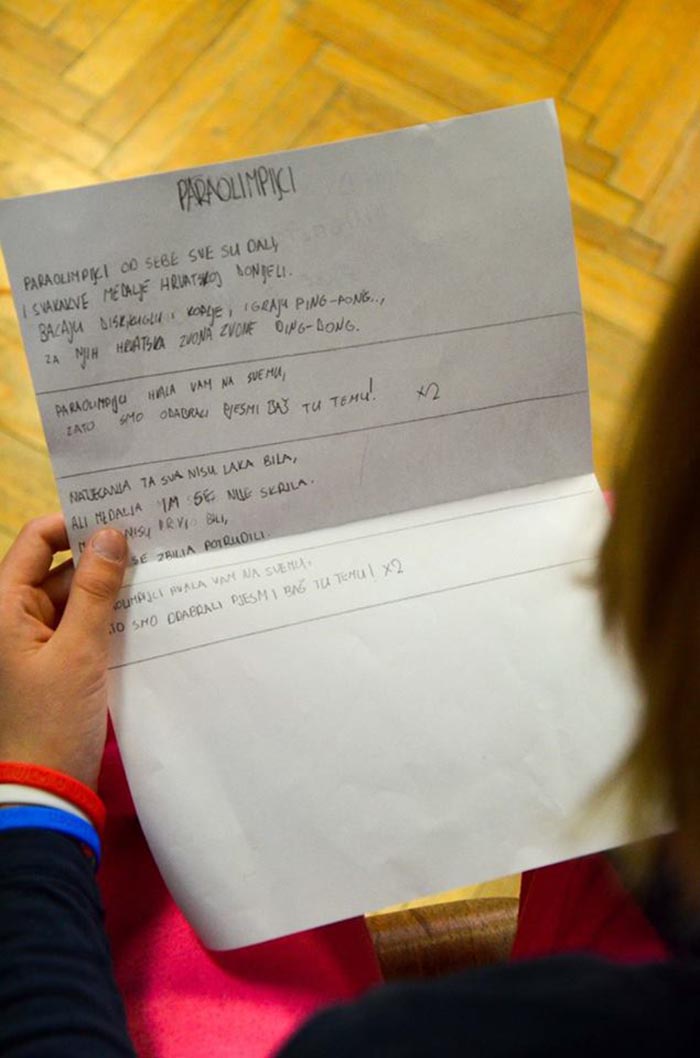 PARAOLIMPIJCI
PARAOLIMPIJCI OD SEBE SVE SU DALI,
I SVAKAKVE MEDALJE HRVATSKOJ DONIJELI.
BACAJU DISK, KUGLU I KOPLJE, IGRAJU PING-PONG..,
ZA NJIH HRVATSKA ZVONA ZVONE DING-DONG.
PARAOLIMPIJCI HVALA VAM NA SVEMU,
ZATO SMO ODABRALI PJESMI BAŠ TU TEMU! X2
NATJECANJA TA SVA NISU LAKA BILA,
ALI MEDALJA IM SE NIJE SKRILA.
NISU PRVI BILI,
SE ZBILJA POTRUDILI.
OLIMPIJCI HVALA VAM NA SVEMU,
TO SMO ODABRALI PJESMI BAŠ TU TEMU! X2